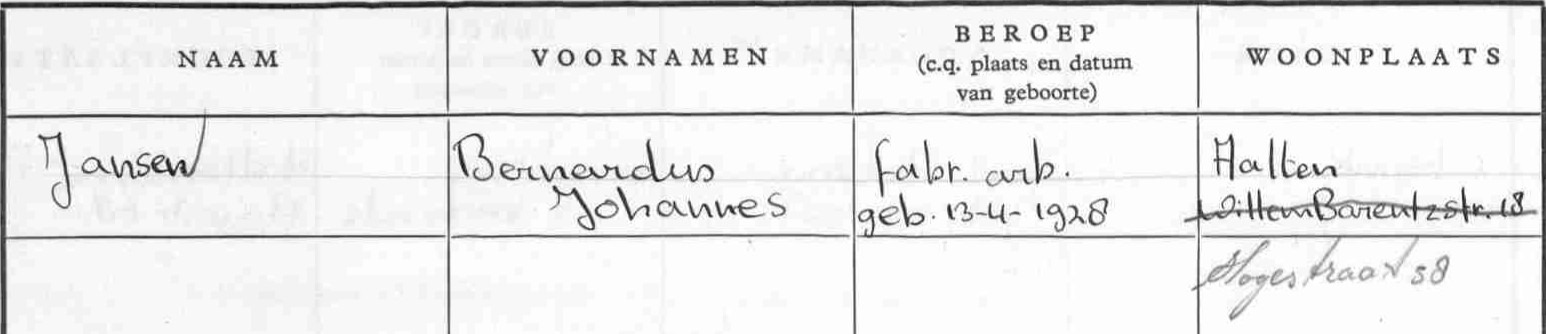 NAAM
VOORNAMEN
BEROEP
(c.q. plaats en datum
van geboorte)
WOONPLAATS
Jansen
Bernardus
Johannes
fabr. arb.
geb. 13-4-1928
Halten
Willem Barentzstr. 18
Hogestraat 38